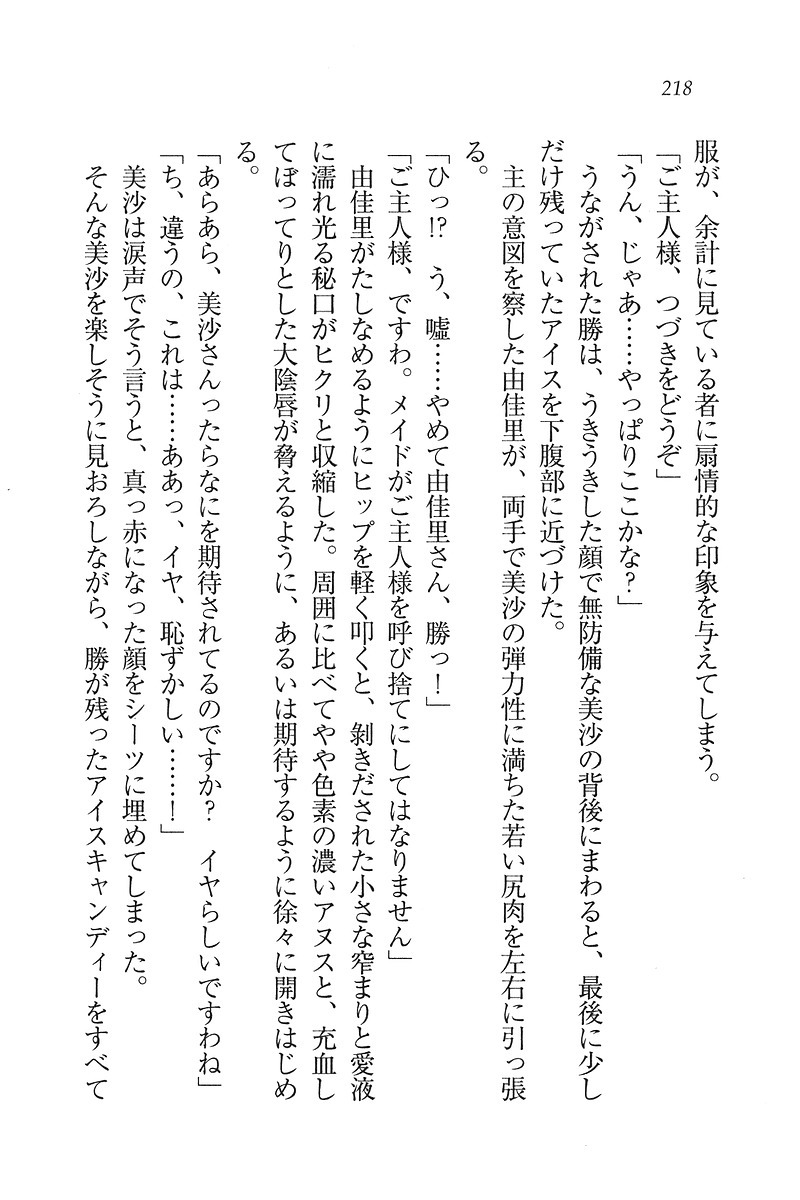 218
服が、余計に見ている者に扇情的な印象を与えてしまう。
「ご主人様、つづきをどうぞ」
「うん、じゃあ……やっぱりここかな？」
うながされた勝は、うきうきした顔で無防備な美沙の背後にまわると、最後に少し
だけ残っていたアイスを下腹部に近づけた。
主の意図を察した由佳里が、両手で美沙の弾力性に満ちた若い尻肉を左右に引っ張
る。
「ひっ!?　う、嘘……やめて由佳里さん、勝っ！」
「ご主人様、ですわ。メイドがご主人様を呼び捨てにしてはなりません」
由佳里がたしなめるようにヒップを軽く叩くと、剝きだされた小さな窄まりと愛液
に濡れ光る秘口がヒクリと収縮した。周囲に比べてやや色素の濃いアヌスと、充血し
てぼってりとした大陰唇が脅えるように、あるいは期待するように徐々に開きはじめ
る。
「あらあら、美沙さんったらなにを期待されてるのですか？　イヤらしいですわね」
「ち、違うの、これは……ああっ、イヤ、恥ずかしい……！」
美沙は涙声でそう言うと、真っ赤になった顔をシーツに埋めてしまった。
そんな美沙を楽しそうに見おろしながら、勝が残ったアイスキャンディーをすべて